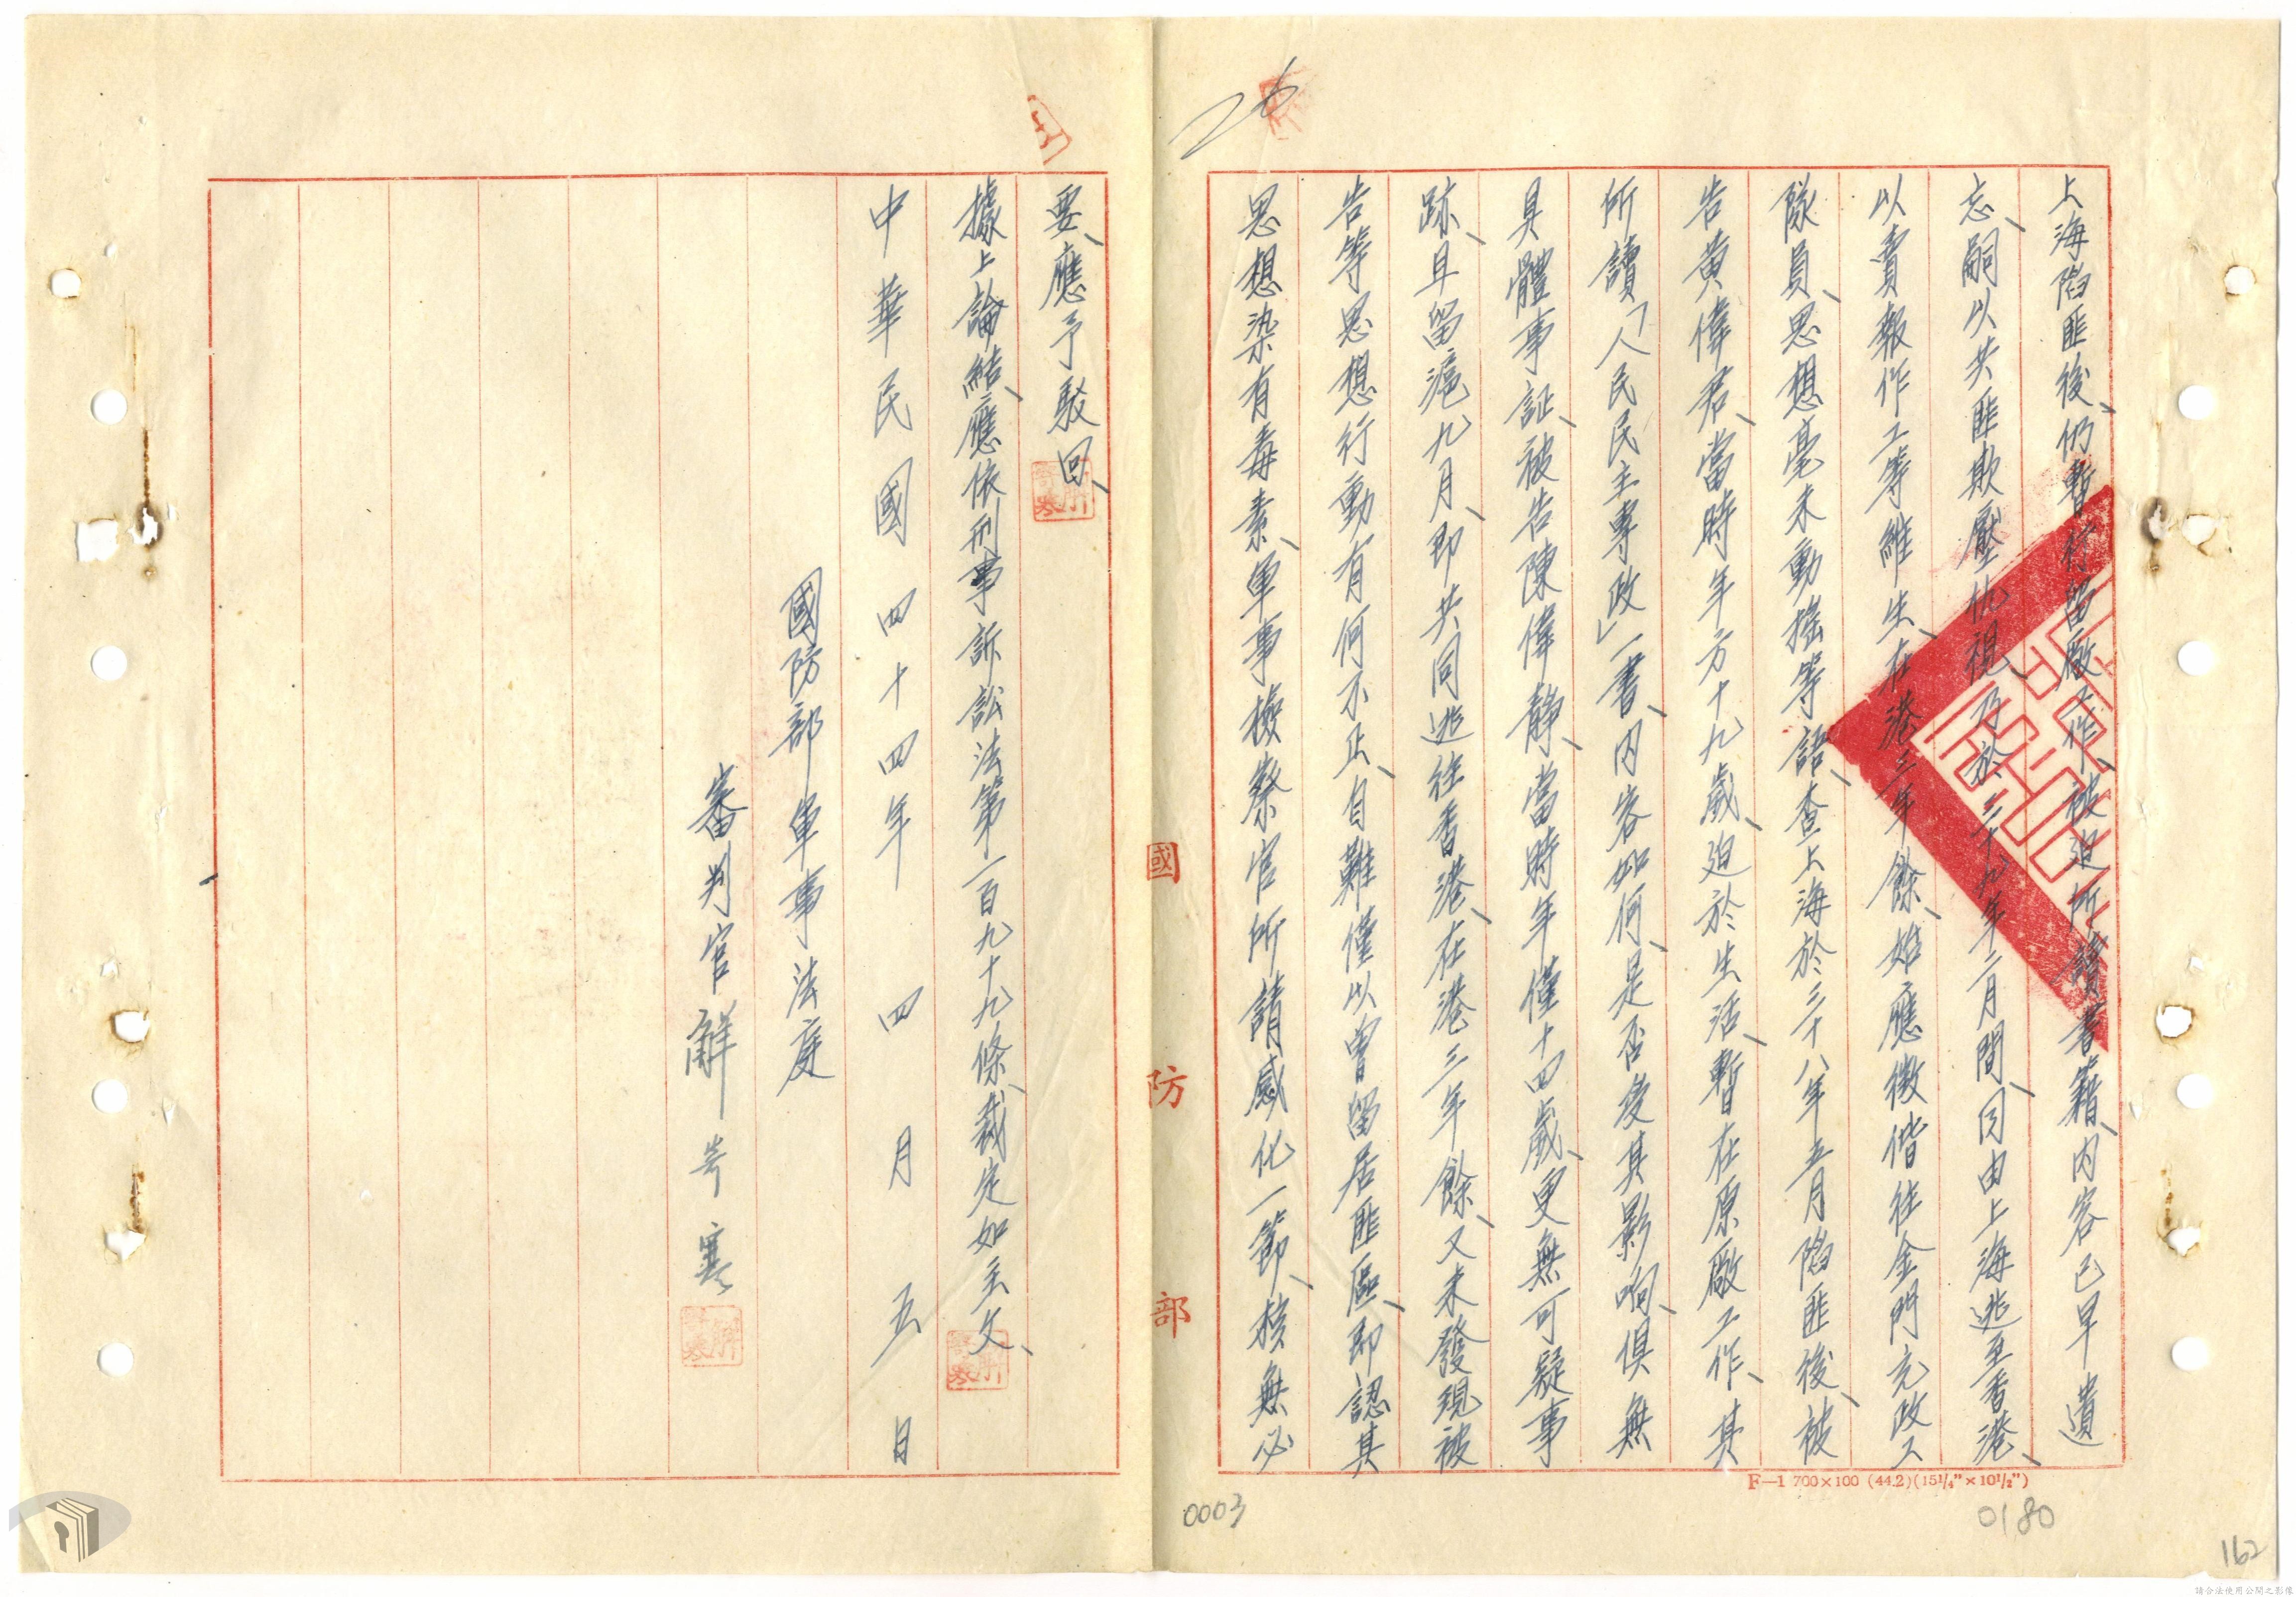 上海陷匪後、仍暫行留廠工作、被迫所讀書籍、內容已早遺
忘、嗣以共匪欺壓仇視、乃於三十九年二月間、同由上海逃至香港、
以賣報作工等維生、在港三年餘、始應徵偕往金門充政工
隊員、思想毫未動搖等語、查上海於三十八年五月陷匪後、被
告黃偉君、當時年方十九歲、迫於生活、暫在原廠工作、其
所讀「人民民主專政」一書、內容如何、是否受其影响、俱無
具體事証、被告陳偉靜、當時年僅十四歲、更無可疑事
跡、且留滬九月、即共同逃往香港、在港三年餘、又未發現被
告等思想行動有何不正、自難僅以曾留居匪區、即認其
思想染有毒素、軍事檢察官所請感化一節、核無必
要、應予駁回、
據上論結、應依刑事訴訟法第一百九十九條、裁定如主文、
中華民國四十四年四月五日
國防部軍事法庭
審判官解岑寒
國防部
F—1 700×100 (44.2)(15¼"×10½")
26
0003
0180
162
請合法使用公開之影像